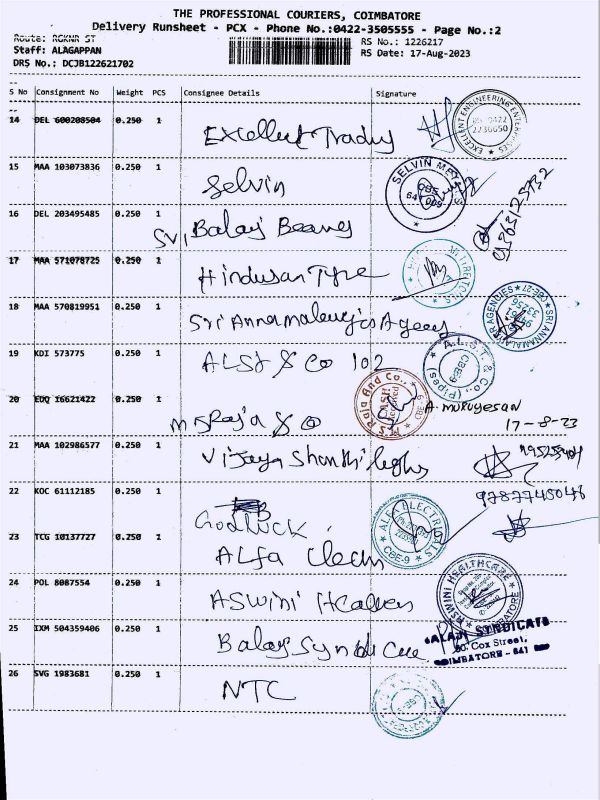 THE PROFESSIONAL COURIERS, COIMBATORE
Delivery Runsheet - PCX - Phone No.:0422-3505555 - Page No.:2
Route: RGKNR ST
RS No.: 1226217
Staff: ALAGAPPAN
RS Date: 17-Aug-2023
DRS No.: DCJB122621702
S No Consignment No Weight PCS Consignee Details Signature
14 DEL 600208504 0.250 1 Excellent Trading
EXCELLENT ENGINEERING ENTERPRISES
15 MAA 103073836 0.250 1 Selvin
SELVIN METALS
16 DEL 203495485 0.250 1 Sri Balaji Bearings
17 MAA 571078725 0.250 1 Hindusan Tyre
18 MAA 570819951 0.250 1 Sri Annamalaiyar Agency
SRI ANNAMALAIYAR AGENCIES CBE-27
19 KDI 573775 0.250 1 ALST & Co 102
A.L.S.T & Co., (Pipes) CBE-9
20 EDQ 16621422 0.250 1 M S Raja & Co
S. Raja And Co., CASH
A. Murugesan
17-8-23
21 MAA 102986577 0.250 1 Vijaya Shanthi
22 KOC 61112185 0.250 1 Goodluck
9787745046
23 TCG 10137727 0.250 1 Alfa Elecm
ALFA ELECTRICALS CBE-9
24 POL 8087554 0.250 1 Aswini
ASWINI HEALTHCARE COIMBATORE
25 IXM 504359406 0.250 1 Balaji Syndicate
BALAJI SYNDICATE
60, Cox Street,
COIMBATORE - 641
26 SVG 1983681 0.250 1 NTC